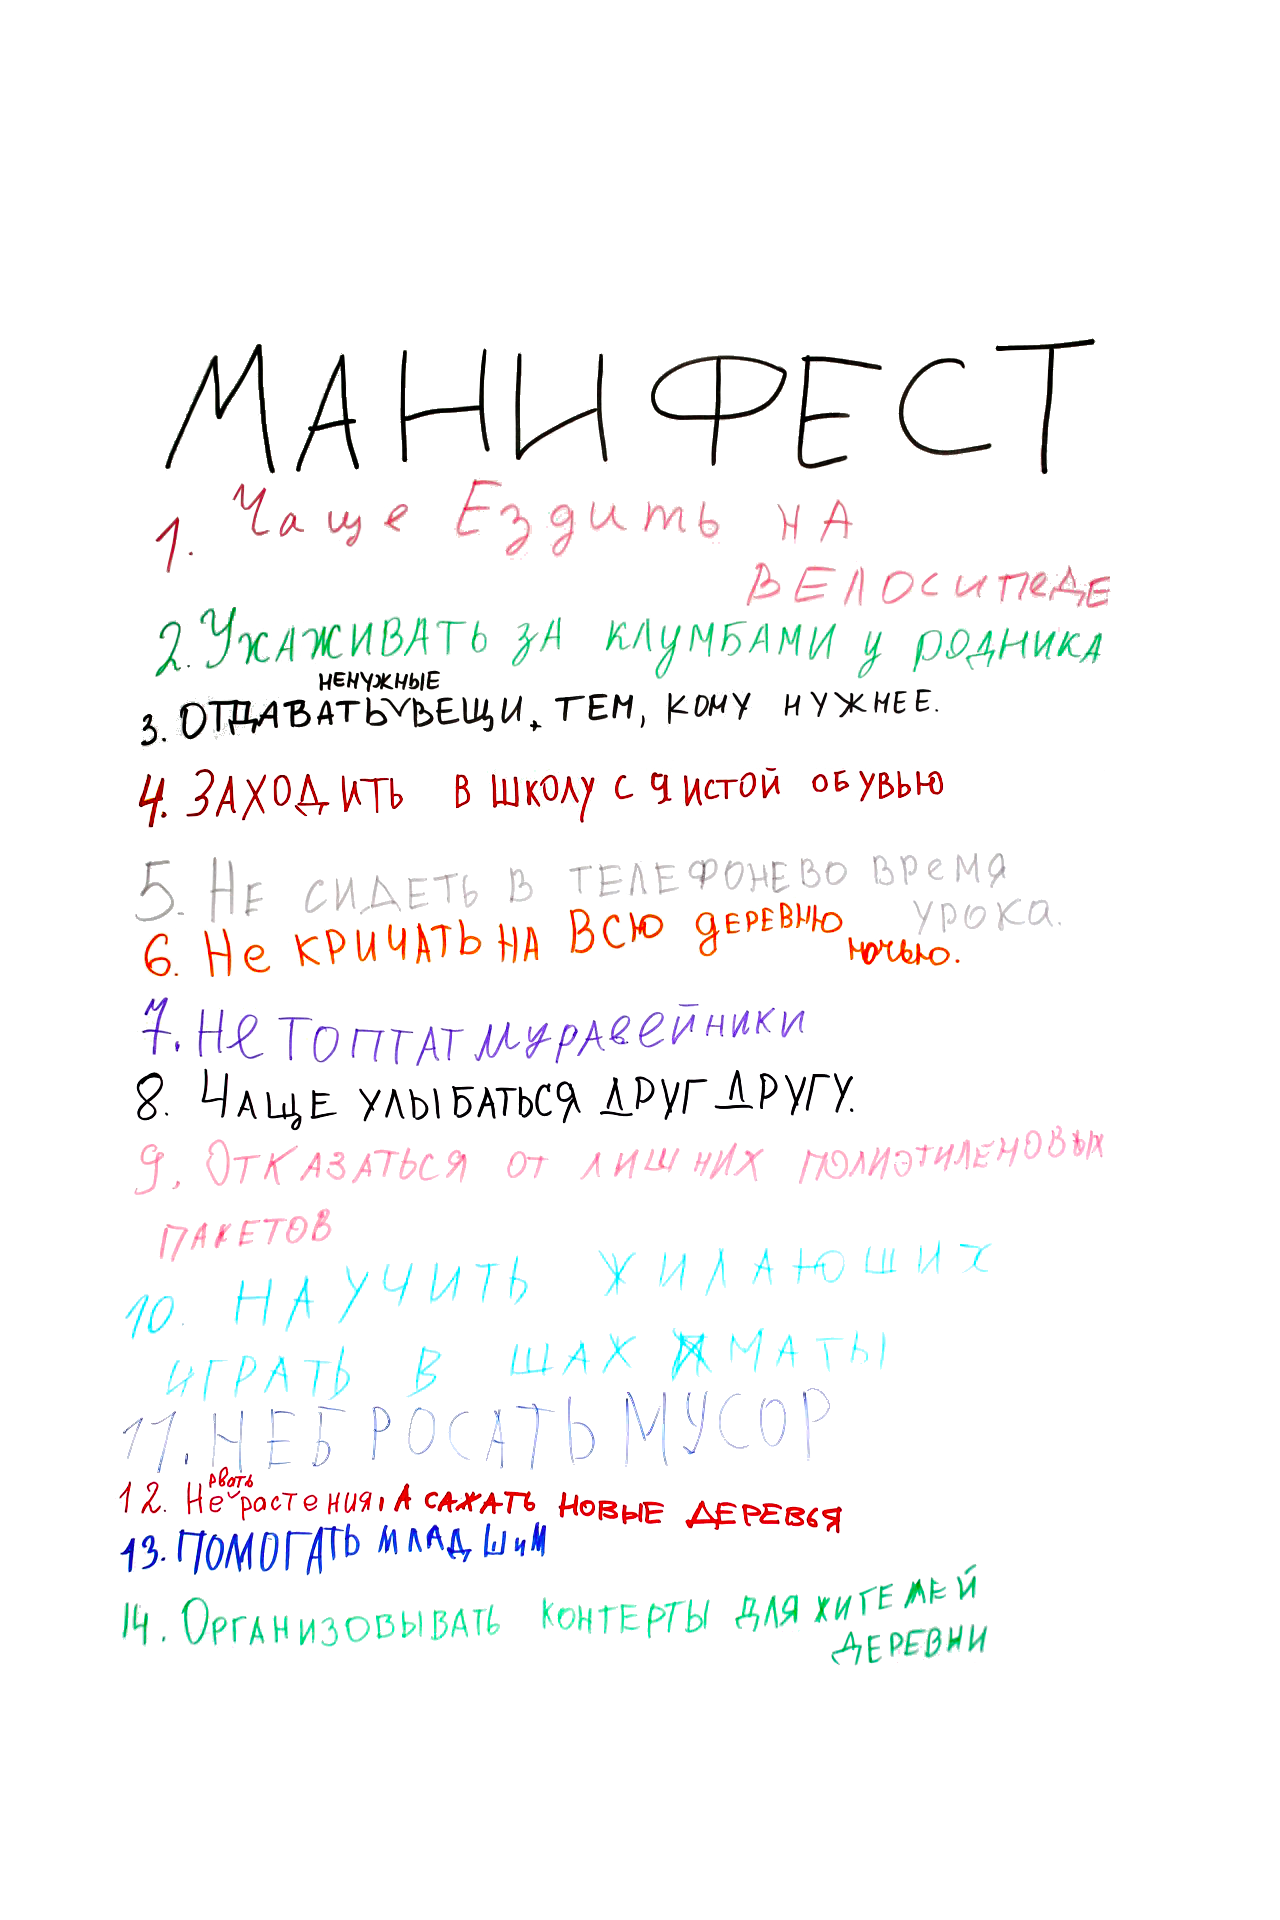 МАНИФЕСТ
1. Чаще Ездить на
велосипеде
2. Ухаживать за клумбами у родника
ненужные
3. Отдавать вещи, тем, кому нужнее.
4. Заходить в школу с чистой обувью
5. Не сидеть в телефонево время
урока.
6. Не кричать на всю деревню
ночью.
7. Не топтат муравейники
8. Чаще улыбаться друг другу.
9. Отказаться от лишних полиэтиленовых
пакетов
10. Научить жилаюших
играть в шахматы
11. Небросать мусор
рвать
12. Не растения, а сажать новые деревья
13. Помогать младшим
14. Организовывать контерты для жителей
деревни